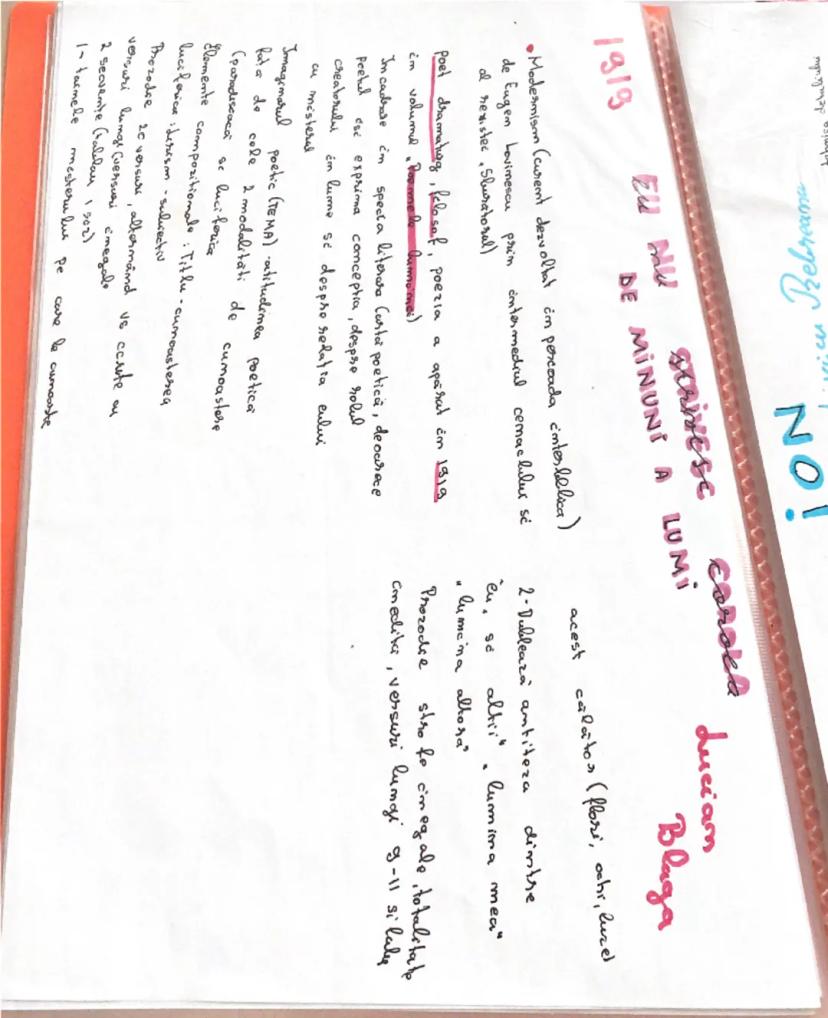 ION
1919
EU NU strivesc corola
DE MINUNI A LUMI
Lucian
Blaga
• Modernism (curent dezvoltat în perioada interbelică)
de Eugen Lovinescu prin intermediul cenaclului si
al revistei „Sburatorul)
poet dramaturg, filosof, poezia a apărut în 1919
în volumul „Poemele luminei)
Incadrare în specia literara (artă poetică, deoarece
poetul isi exprima conceptia, despre rolul
creatorului în lume si despre relația eului
cu misterul
Imaginarul poetic (TEMA) atitudinea poetica
fata de cele 2 modalităti de cunoastere
(paradisiacă si luciferica
Elemente compozitionale : Titlu - cunoasterea
luciferica : lirism - subiectiv
Prozodie 20 versuri, alternând vs scurte cu
versuri lungi (versuri inegale
2 secvente (talblau 1 soz)
1 - tainele misterului pe care le cunoaste
acest călător (flori, ochi, buze)
2 - Dublează antiteza dintre
eu, si altii" „ lumina mea"
„ lumina altora"
Prozodie strofe inegale, totalitate
inedita, versuri lungi 9-11 silabe